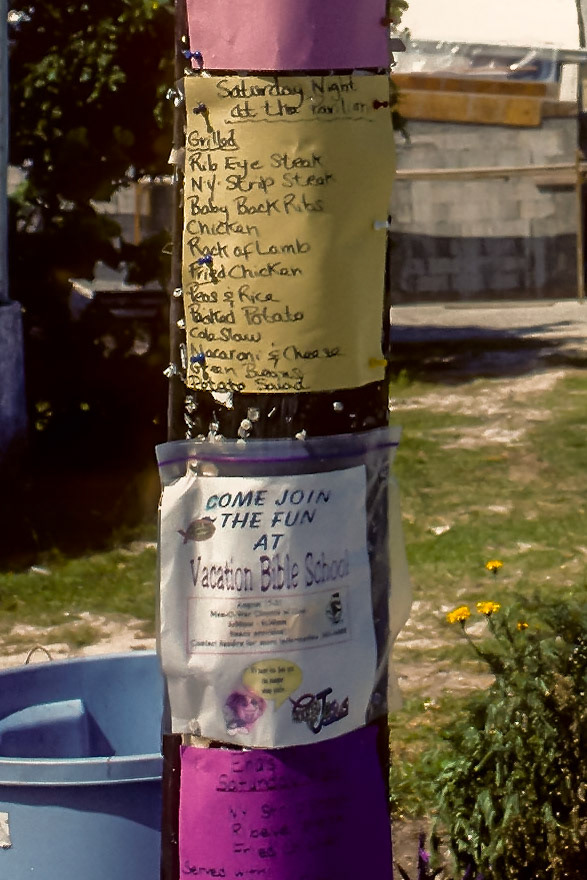 Saturday Night
at the Pavilion
Grilled
Rib Eye Steak
N.Y. Strip Steak
Baby Back Ribs
Chicken
Rack of Lamb
Fried Chicken
Peas & Rice
Baked Potato
Cole Slaw
Macaroni & Cheese
Green Beans
Potato Salad
COME JOIN
THE FUN
AT
Vacation Bible School
August
Men-O-War
Contact for more information
Saturday
NY
Ribeye
Fried
Served with